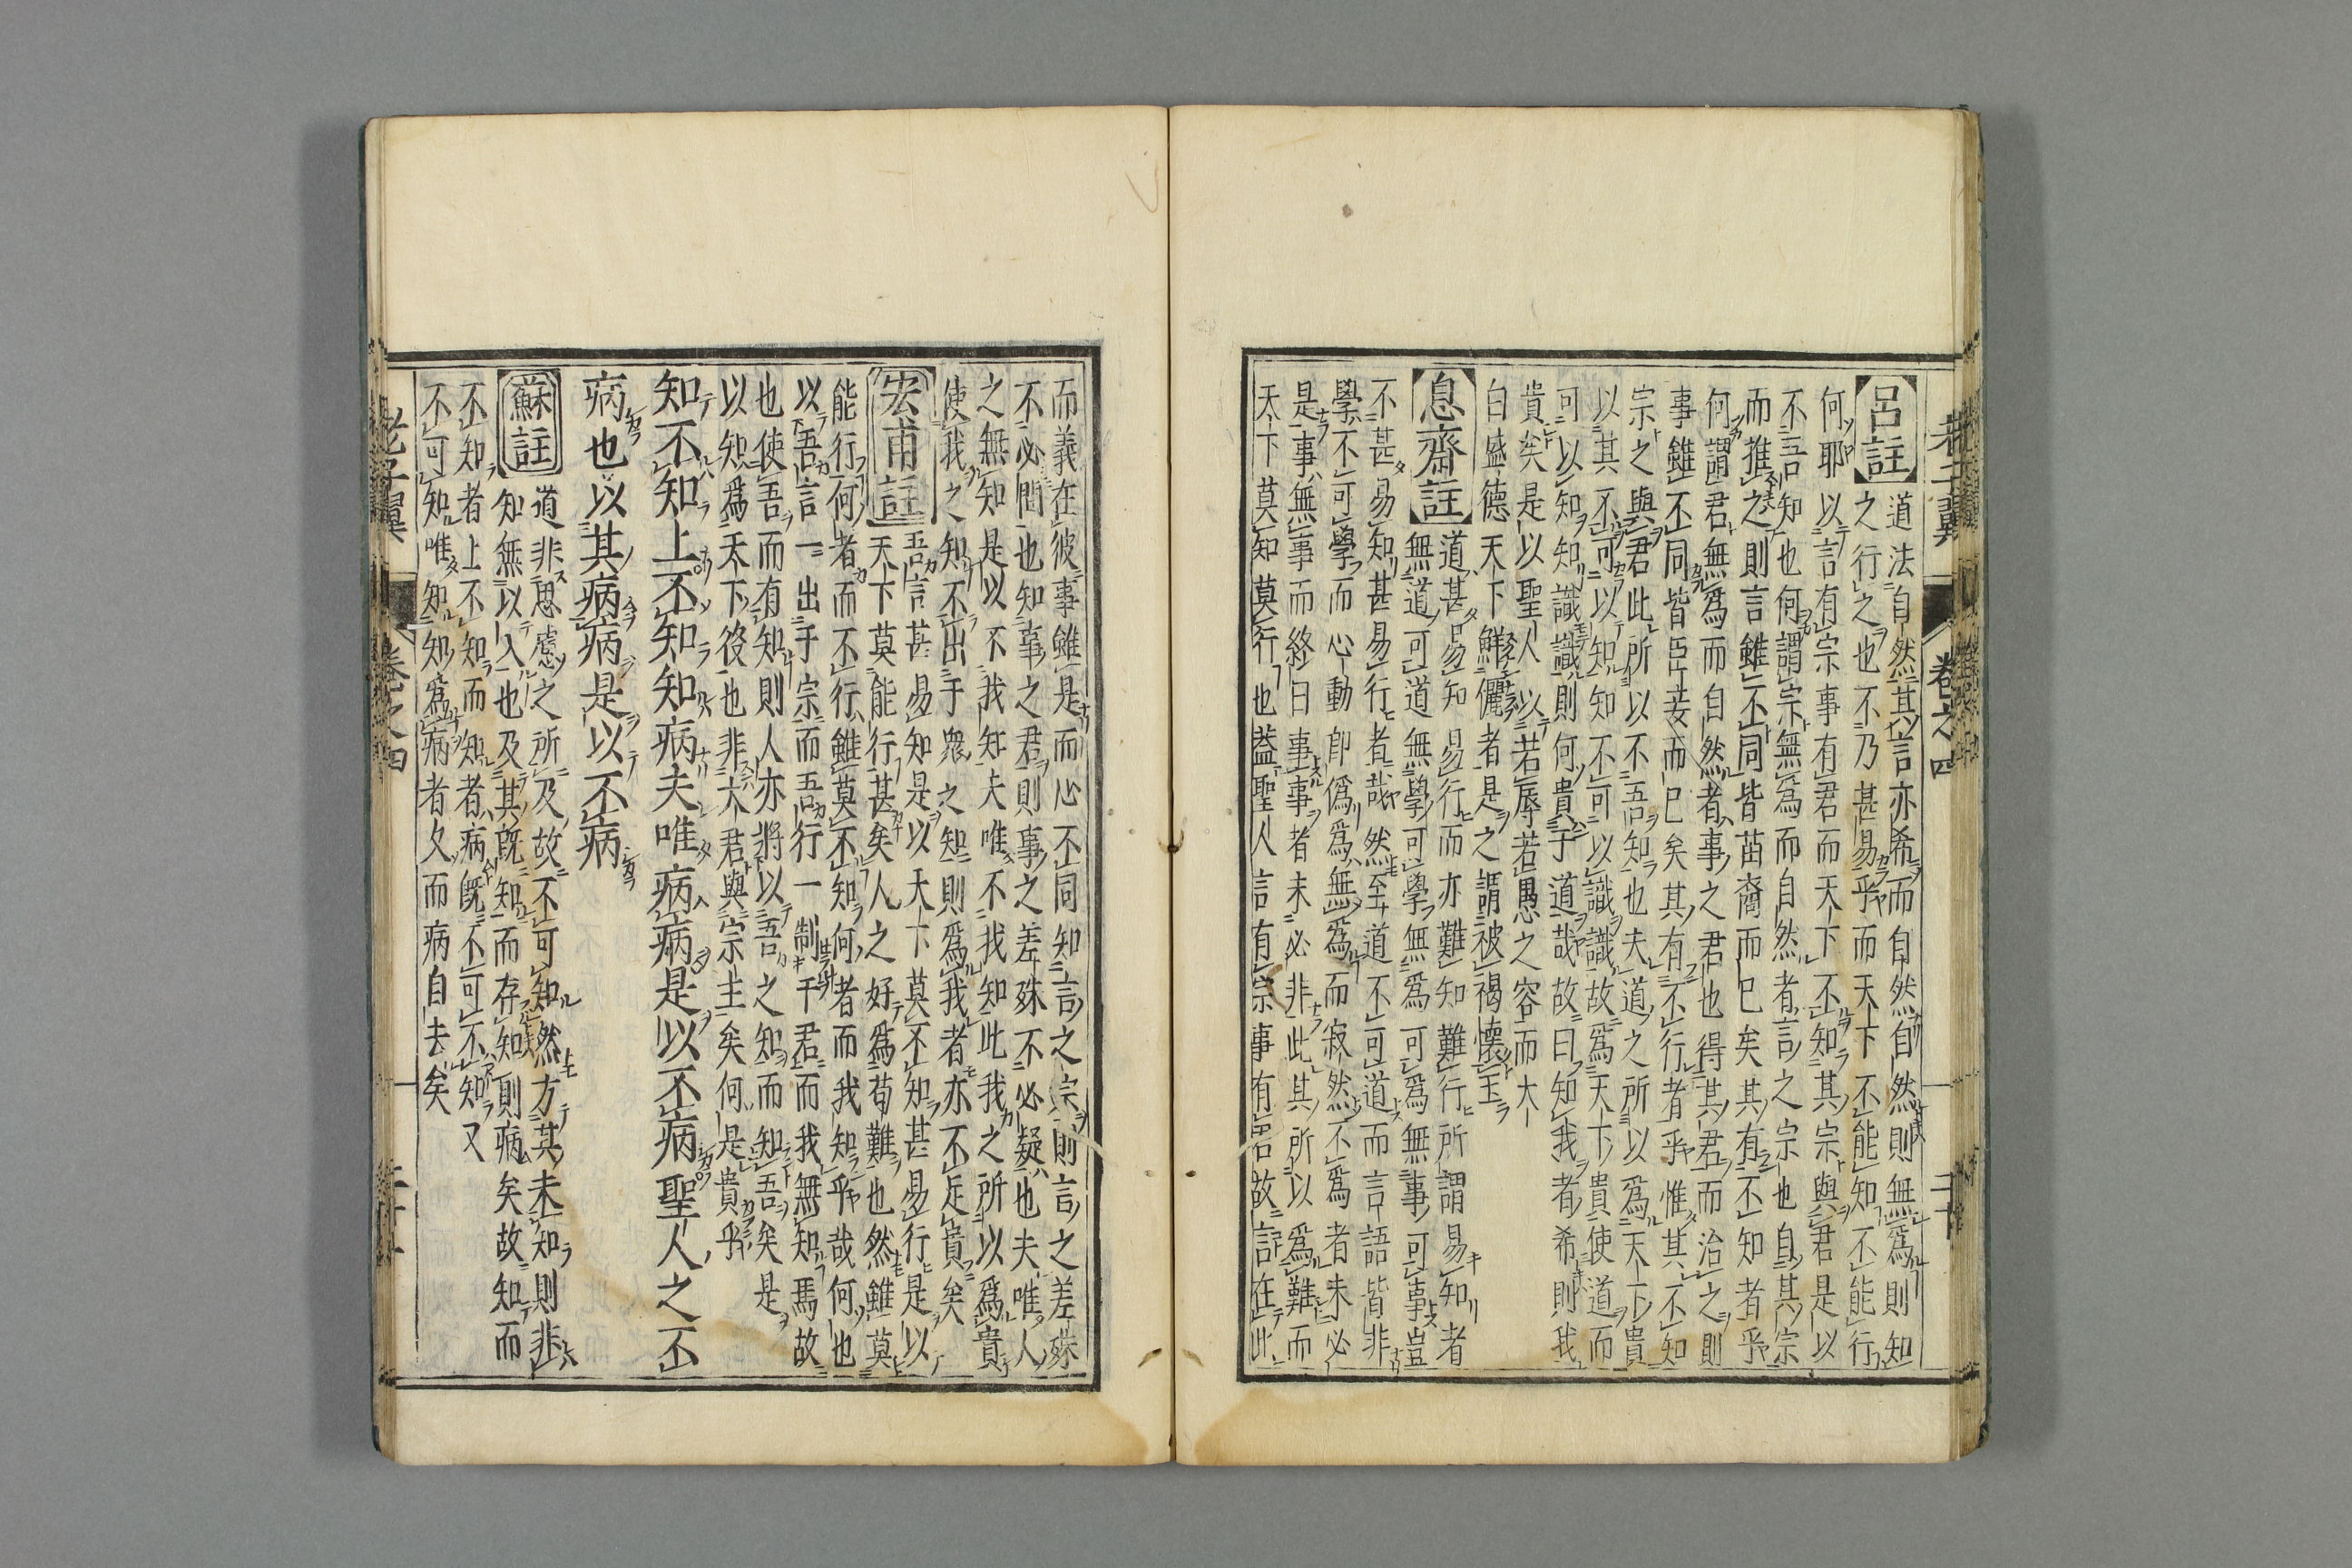 老子翼 卷之四 二十
呂註 道法自然其言亦希而自然自然則無爲則知
之行之也不乃甚易乎而天下不能知不能行
何耶以言有宗事有君而天下不知其宗與君是以
不吾知也何謂宗無爲而自然者言之宗也自其宗
而推之則言雖不同皆苗裔而已矣其有不知者乎
何謂君無爲而自然者事之君也得其君而治之則
事雖不同皆臣妾而已矣其有不行者乎惟其不知
宗之與君此所以不吾知也夫道之所以爲天下貴
以其不可以知知不可以識識故爲天下貴使道而
可以知知識識則何貴于道哉故曰知我者希則我
貴矣是以聖人以若辱若愚之容而大
白盛德天下鮮儷者是之謂被褐懷玉
息齋註 道甚易知易行而亦難知難行所謂易知者
無道可道無學可學無爲可爲無事可事豈
不甚易知甚易行者哉然至道不可道而言語皆非
學不可學而心動卽僞爲無爲而寂然不爲者未必
是事無事而終日事事者未必非此其所以爲難而
天下莫知莫行也蓋聖人言有宗事有君故言在此
而義在彼事雖是而心不同知言之宗則言之差殊
不必問也知事之君則事之差殊不必疑也夫唯人
之無知是以不我知夫唯不我知此我之所以爲貴
使我之知不出于衆之知則爲我者亦不足貴矣
宏甫註 吾言甚易知是以天下莫不知甚易行是以
天下莫能行甚矣人之好爲苟難也然雖莫
能行何者而不行雖莫不知何者而我知乎哉何也
以吾言一出于宗而吾行一制于君而我無知焉故
也使吾而有知則人亦將以吾之知而知吾矣是
以知爲天下役也非大君與宗主矣何是貴乎
知不知上不知知病夫唯病病是以不病聖人之不
病也以其病病是以不病
蘇註 道非思慮之所及故不可知然方其未知則非
知無以入也及其旣知而存知則病矣故知而
不知者上不知而知者病旣不可不知又
不可知唯知知爲病者久而病自去矣
老子翼 卷之四 二十一